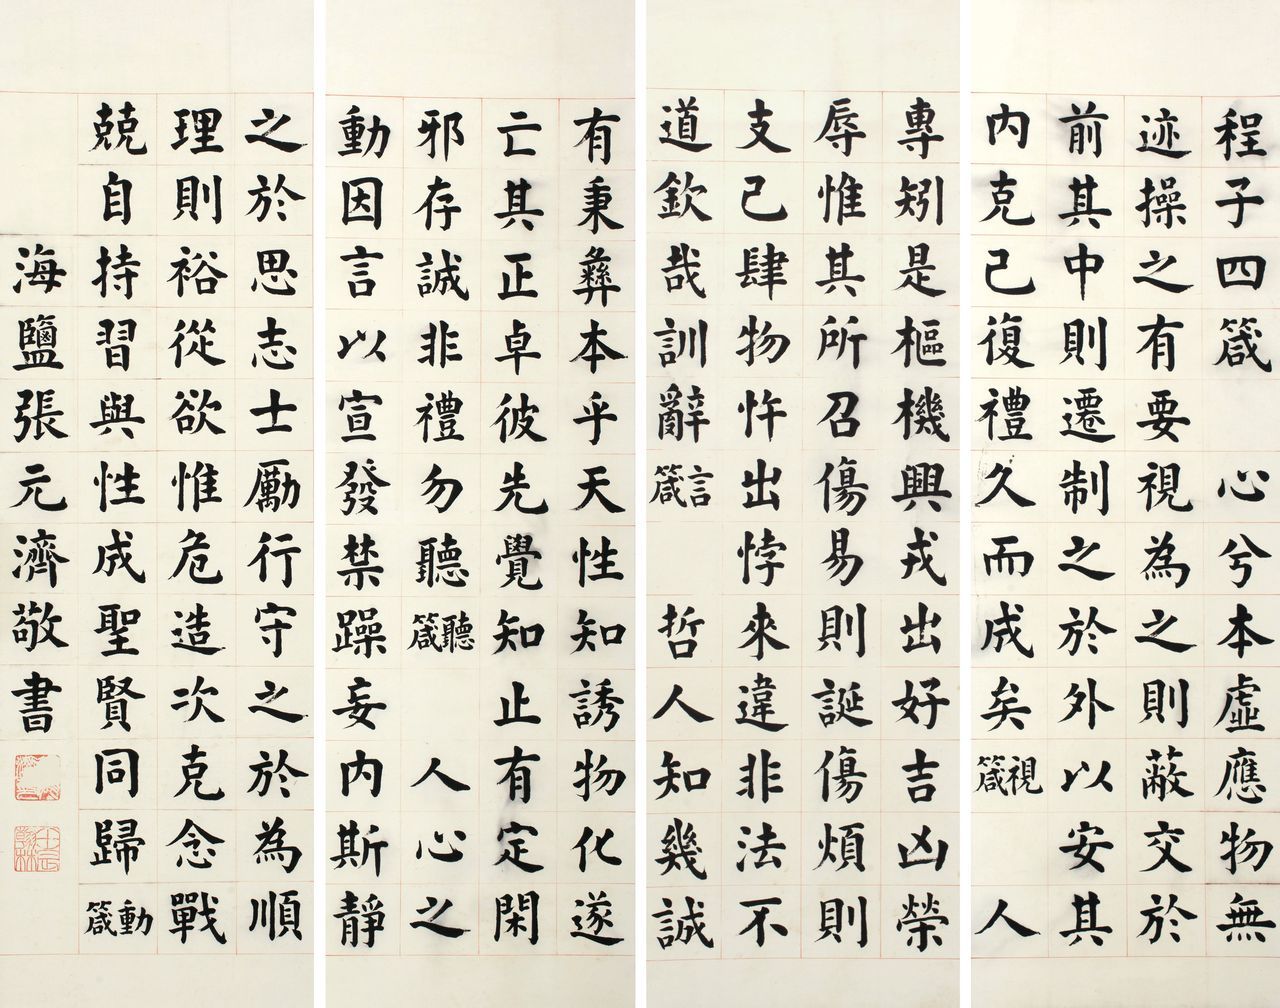 程子四箴 心兮本虛應物無
迹操之有要視為之則蔽交於
前其中則遷制之於外以安其
內克己復禮久而成矣視箴 人
專矧是樞機興戎出好吉凶榮
辱惟其所召傷易則誕傷煩則
支己肆物忤出悖來違非法不
道欽哉訓辭言箴 哲人知幾誠
有秉彝本乎天性知誘物化遂
亡其正卓彼先覺知止有定閑
邪存誠非禮勿聽聽箴 人心之
動因言以宣發禁躁妄內斯靜
之於思志士勵行守之於為順
理則裕從欲惟危造次克念戰
兢自持習與性成聖賢同歸動箴
海鹽張元濟敬書